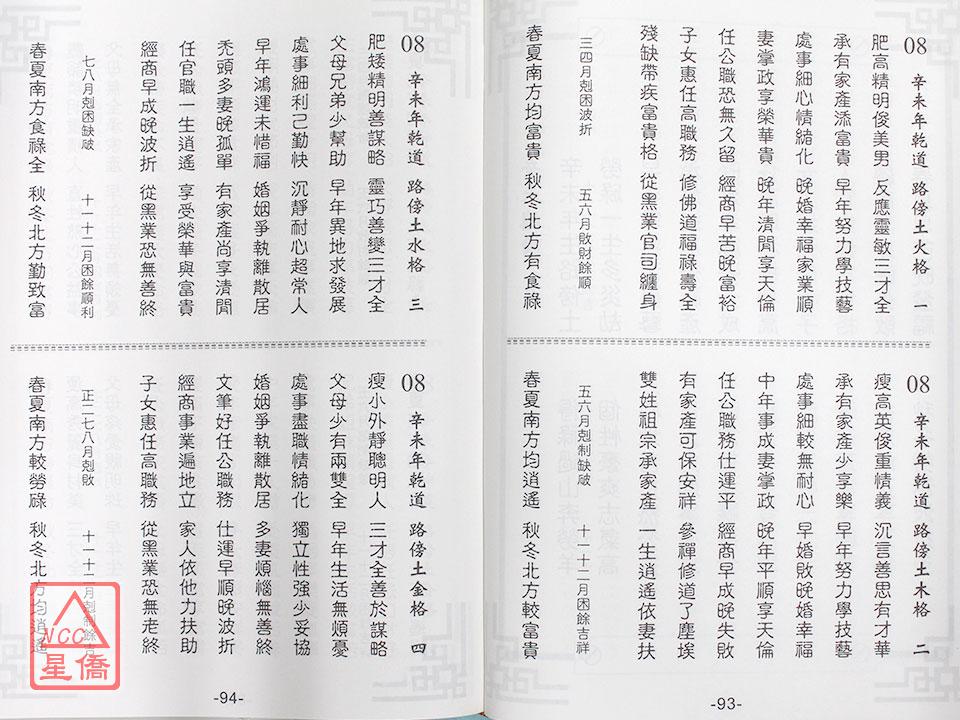 08 辛未年乾道 路傍土火格 一
肥高精明俊美男 反應靈敏三才全
承有家產添富貴 早年努力學技藝
處事細心情緒化 晚婚幸福家業順
妻掌政享榮華貴 晚年清閒享天倫
任公職恐無久留 經商早苦晚富裕
子女惠任高職務 修佛道福祿壽全
殘缺帶疾富貴格 從黑業官司纏身
三四月剋困波折 五六月敗財餘順
春夏南方均富貴 秋冬北方有食祿
08 辛未年乾道 路傍土木格 二
瘦高英俊重情義 沉言善思有才華
承有家產少享樂 早年努力學技藝
處事細較無耐心 早婚敗晚婚幸福
中年事成妻掌政 晚年平順享天倫
任公職務仕運平 經商早成晚失敗
有家產可保安祥 參禪修道了塵埃
雙姓祖宗承家產 一生逍遙依妻扶
五六月剋制缺破 十一十二月困餘吉祥
春夏南方均逍遙 秋冬北方較富貴
-93-
08 辛未年乾道 路傍土水格 三
肥矮精明善謀略 靈巧善變三才全
父母兄弟少幫助 早年異地求發展
處事細利己勤快 沉靜耐心超常人
早年鴻運未惜福 婚姻爭執離散居
禿頭多妻晚孤單 有家產尚享清閒
任官職一生逍遙 享受榮華與富貴
經商早成晚波折 從黑業恐無善終
七八月剋困缺破 十一十二月困餘順利
春夏南方食祿全 秋冬北方勤致富
08 辛未年乾道 路傍土金格 四
瘦小外靜聰明人 三才全善於謀略
父母少有兩雙全 早年生活無煩憂
處事盡職情緒化 獨立性強少妥協
婚姻爭執離散居 多妻煩惱無善終
文筆好任公職務 仕運早順晚波折
經商事業遍地立 家人依他力扶助
子女惠任高職務 從黑業恐無老終
正二七八月剋敗 十一十二月剋制餘吉
春夏南方較勞碌 秋冬北方均逍遙
-94-
NCC
星僑